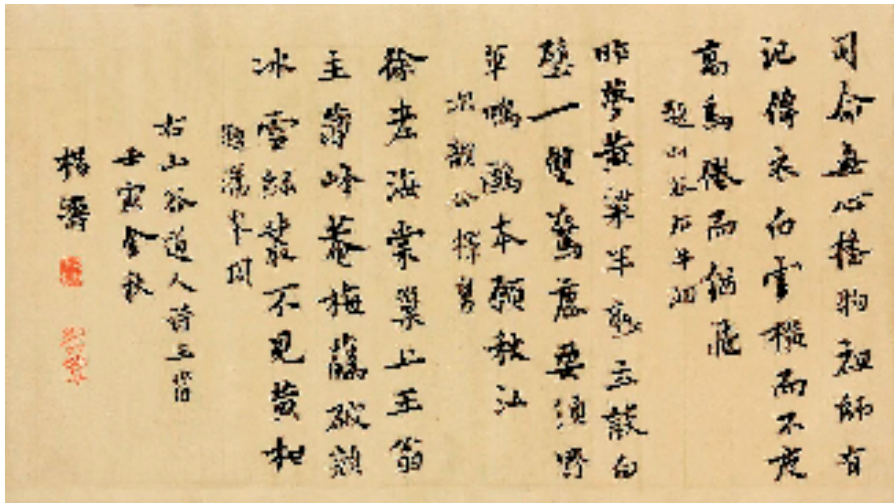 司命無心播物祖師有
記傳衣白雲橫而不度
高鳥倦而猶飛
題山谷石牛洞
昨夢黃粱半熟立談白
璧一雙驚鹿要須野
草鳴鷗本願秋江
次韻公擇舅
徐老海棠巢上王翁
主簿峰菴梅蘤破顏
冰雪綠叢不見黃柑
題灊峯閣
右山谷道人诗三首
壬寅金秋
楊